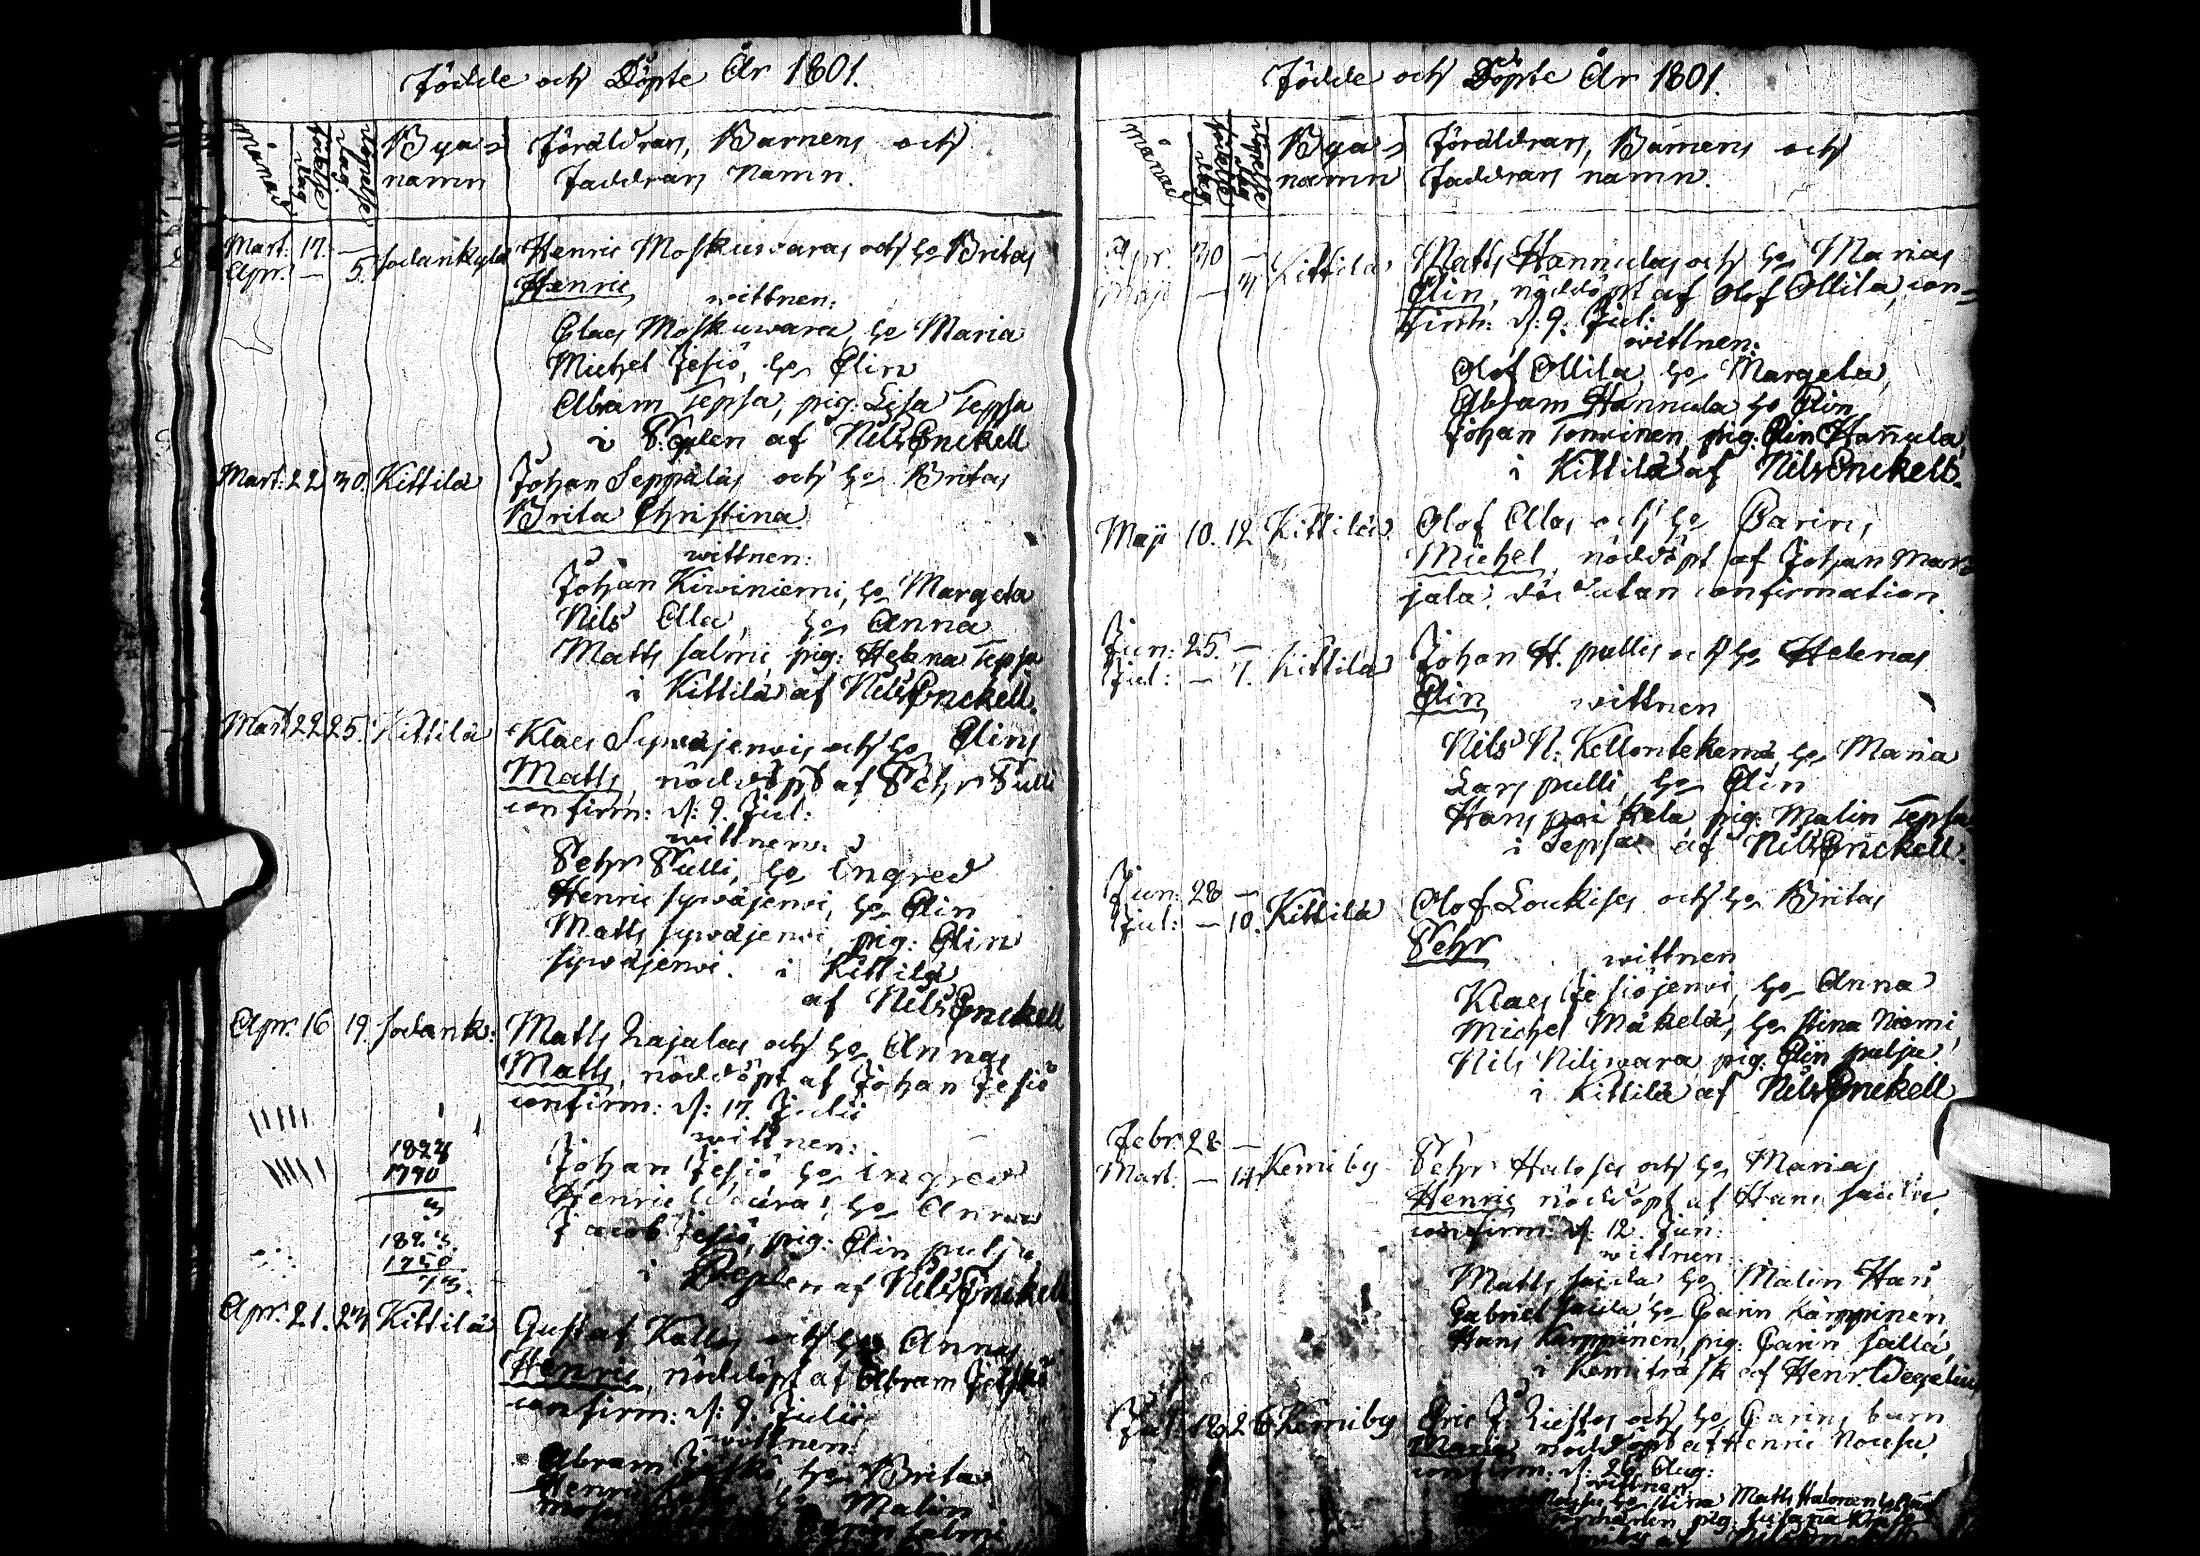 Födde och Döpte År 1801.
Månad
Födelse dag
Döpelse dag
Bya=
namn
Föräldrars, Barnens och
Faddrars Namn.
Mart: 17. — Sodankylä
Apr. — 5.
Henric Moskuwaras och h:s Britas
Henric
wittnen:
Claes Moskuwara, h:s Maria
Michel Jesiö, h:s Elin
Abram Tepsa, pig: Lisa Tepsa
i af Nils Enckell
Mart: 22 30. Kittilä
Johan Seppälas och h:s Britas
Brita Christina
wittnen:
Johan Kiwiniemi, h:s Margeta
Nils Alla, h:s Anna
Matts Salmi, pig: Helena Tepsa
i Kittilä af Nils Enckell.
Mart 22 25. Kittilä
Klaes Sywäjerwis och h:s Elins
Matts, nöddöpt af Pehr Pulli
confirm: d: 9. Jul:
wittnen:
Pehr Pulli, h:s Ingred
Henric Sywäjerwi, h:s Elin
Matts Sywäjerwi, pig: Elin
Sywäjerwi. i Kittilä
af Nils Enckell
Apr. 16 19. Sodank:
Matts Rajalas och h:s Annas
Matts, nöddöpt af Johan Jesiö
confirm: d: 17. Julii
wittnen:
Johan Jesiö h:s Ingred
Henric h:s Anna
Jacob Jesiö, pig: Elin pulju
i af Nils Enckell
1790
3
1823.
1750
73.
Apr. 21. 23 Kittilä
Gustaf Kallos och h:s Annas
Henric, nöddöpt af Abram
confirm: d: 9. Julii
wittnen:
Abram h:s Brita
Henric h:s Malin
Salmi
Födde och Döpte År 1801.
Månad
Födelse dag
Döpelse dag
Bya=
namn
Föräldrars, Barnens och
Faddrars namn.
Apr. 30 — Kittilä
Maji — 3
Matts Hannulas och h:s Marias
Elin, nöddöpt af Olof Ollila, con=
firm: d: 9. Jul:
wittnen:
Olof Ollila, h:s Margeta,
Abram Hannula h:s Elin,
Johan Tonwinen, pig: Elin Hannula,
i Kittilä af Nils Enckell.
Maji 10. 12 Kittilä
Olof Allas och h:s Carins,
Michel, nöddöpt af Johan Mark
jala. död utan confirmation.
Jun: 25. —
Jul: — 7. Kittilä
Johan H. pullis och h:s Helenas
Elin wittnen
Nils N: Kellontekema, h:s Maria
Lars pulli, h:s Elin
Hans poikela pig: Malin Tepsa
i Tepsa af Nils Enckell.
Jun: 28 —
Jul: — 10. Kittilä
Olof Loukises och h:s Britas
Pehr
wittnen
Klaes Jesiöjerwi, h:s Anna
Michel Mäkelä, h:s Stina Niemi
Nils Niliwara, pig: Elin pulju
i Kittilä af Nils Enckell
Febr: 28 —
Mart. — 14 Kemiby
Pehr Haloses och h:s Marias
Henric nöddöpt af Hans Saula,
confirm: d: 12. Jun:
wittnen
Matts h:s Malin
Gabriel h:s Carin Kärppinen
Hans Kärppinen, pig: Carin Salla,
i Kemiträsk af Henr. Wegelius
Jul: 18. 26 Kemiby
Eric J. och h:s Carins barn
Maria nöddöpt af Henric Nousu,
confirm: d: 26. Aug:
wittnen
h:s Stina Matts
pig: Susanna